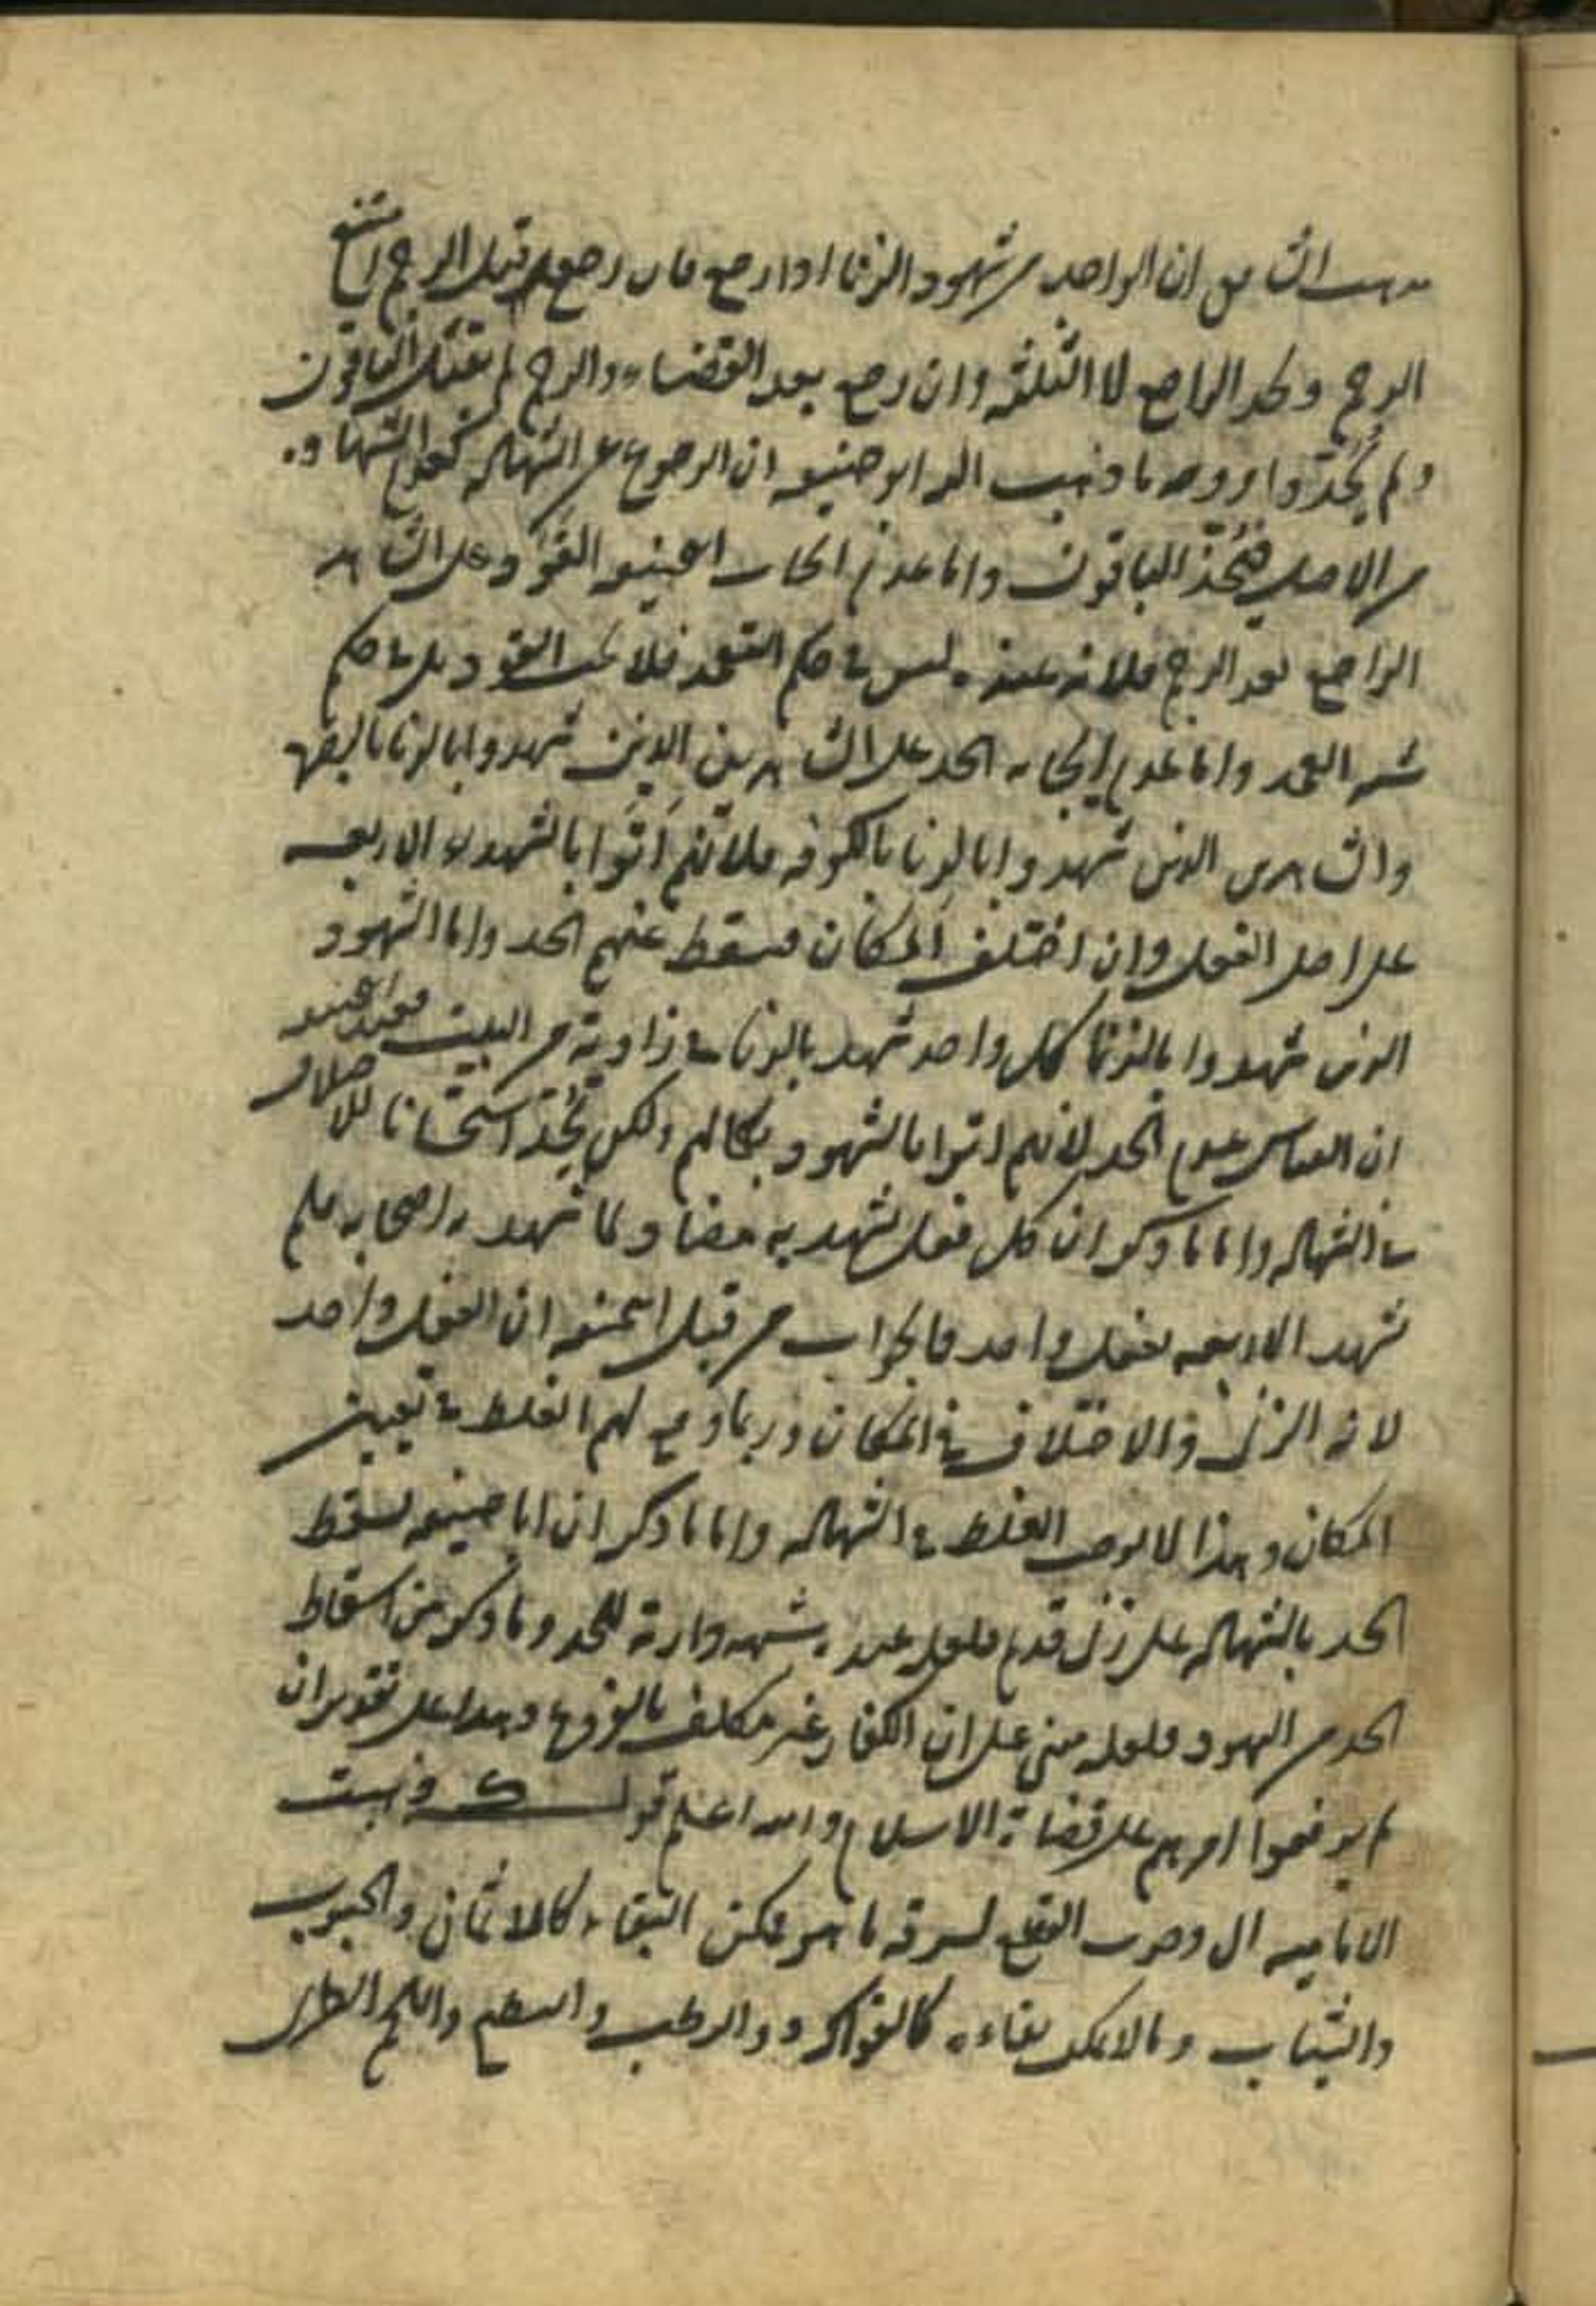 مذهب الشافعي ان الواحد من شهود الزنا اذا رجع فان رجع قبل الرجم امتنع
الرجم وحد الراجع لا الثلثة وان رجع بعد القضاء والرجم لم يقتل الباقون
ولم يحدوا ووجه ما ذهب اليه ابو حنيفه ان الرجوع عن الشهاده كعدم الشهاده
من الاصل فيحد الباقون واما عدم ايجاب ابي حنيفه القود على الشاهد
الراجع بعد الرجم فلانه عنده ليس في حكم التعمد فلا يجب القود بل في حكم
شبه العمد واما عدم ايجابه الحد على الشاهدين الذين شهدوا بالزنا بالبصره
والشاهدين الذين شهدوا بالزنا بالكوفه فلانهم اتوا بالشهداء الاربعه
على اصل الفعل وان اختلف المكان فسقط عنهم الحد واما الشهود
الذين شهدوا بالزنا كل واحد شهد بالزنا في زاوية من البيت فعند ابي حنيفه
ان القياس عدم الحد لانهم اتوا بالشهود بكمالهم ولكن يحد استحسانا للاختلاف
في الشهاده واما ما ذكر ان كل فعل شهد به مضاد لما شهد به اصحابه فلم
تشهد الاربعه بفعل واحد فالجواب من قبل ابي حنيفه ان الفعل واحد
لانه الزنى والاختلاف في المكان وربما وقع لهم الغلط في تعيين
المكان وهذا لا يوجب الغلط في الشهاده واما ما ذكر ان ابا حنيفه يسقط
الحد بالشهاده على زنى قديم فلعل عنده شبهه دارئة للحد وما ذكر من اسقاط
الحد من اليهود فلعله مبني على ان الكفار غير مكلف بالفروع وهذا على تقدير ان
لم يرفعوا امرهم على قضاة الاسلام والله اعلم قولـــه ذهبت
الاماميه الى وجوب القطع لسرقه ما هو ممكن البقاء كالاثمان والحبوب
والثياب وما لا يمكن بقاءه كالفواكه والرطب والبطيخ واللحم الطري